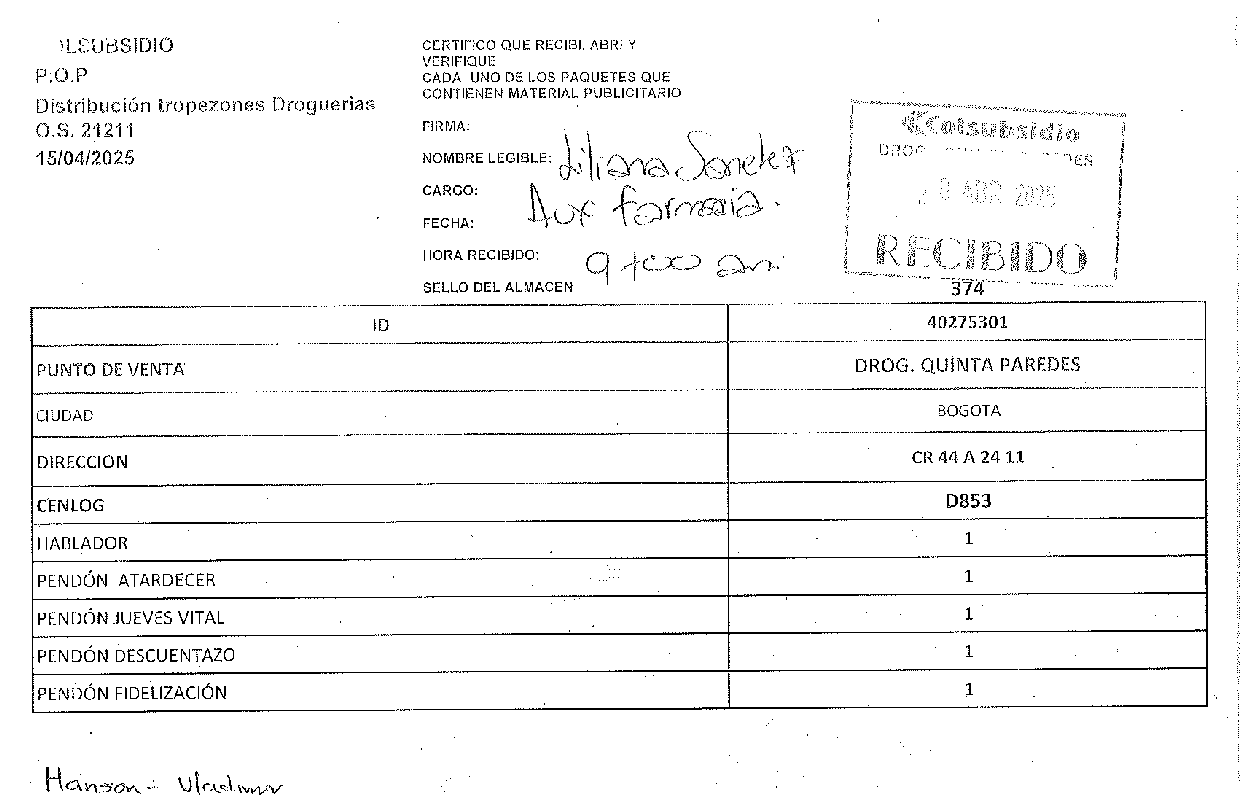 COLSUBSIDIO
P.O.P
Distribución tropezones Droguerias
O.S. 21211
15/04/2025
CERTIFICO QUE RECIBI, ABRI Y
VERIFIQUE
CADA UNO DE LOS PAQUETES QUE
CONTIENEN MATERIAL PUBLICITARIO
FIRMA:
NOMBRE LEGIBLE: Liliana
CARGO: Aux farmacia.
FECHA:
HORA RECIBIDO: 9+00 am
SELLO DEL ALMACEN
Colsubsidio
DROG
ABR 2025
RECIBIDO
374
ID 40275301
PUNTO DE VENTA DROG. QUINTA PAREDES
CIUDAD BOGOTA
DIRECCION CR 44 A 24 11
CENLOG D853
HABLADOR 1
PENDÓN ATARDECER 1
PENDÓN JUEVES VITAL 1
PENDÓN DESCUENTAZO 1
PENDÓN FIDELIZACIÓN 1
Hanson - Vladimir